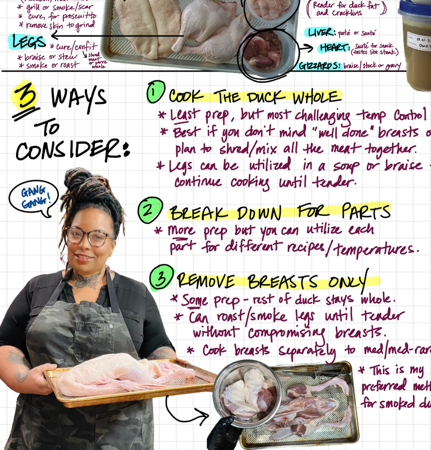 * grill or smoke/sear
* cure, for prosciutto
* remove skin to grind
LEGS
* cure/confit
* braise or stew
* smoke or roast
(render for duck fat)
and cracklins
LIVER: pate or sauté
HEART: sauté for snack
(tastes like steak)
GIZZARDS: braise/stock or gravy
3 WAYS
TO
CONSIDER:
GANG
GANG!
1 COOK THE DUCK WHOLE
* Least prep, but most challenging temp control
* Best if you don't mind "well done" breasts o
plan to shred/mix all the meat together.
* Legs can be utilized in a soup or braise
continue cooking until tender.
2 BREAK DOWN FOR PARTS
* More prep but you can utilize each
part for different recipes/temperatures.
3 REMOVE BREASTS ONLY
* Some prep - rest of duck stays whole.
* Can roast/smoke legs until tender
without compromising breasts.
* Cook breasts separately to med/med-rar
* This is my
preferred meth
for smoked du